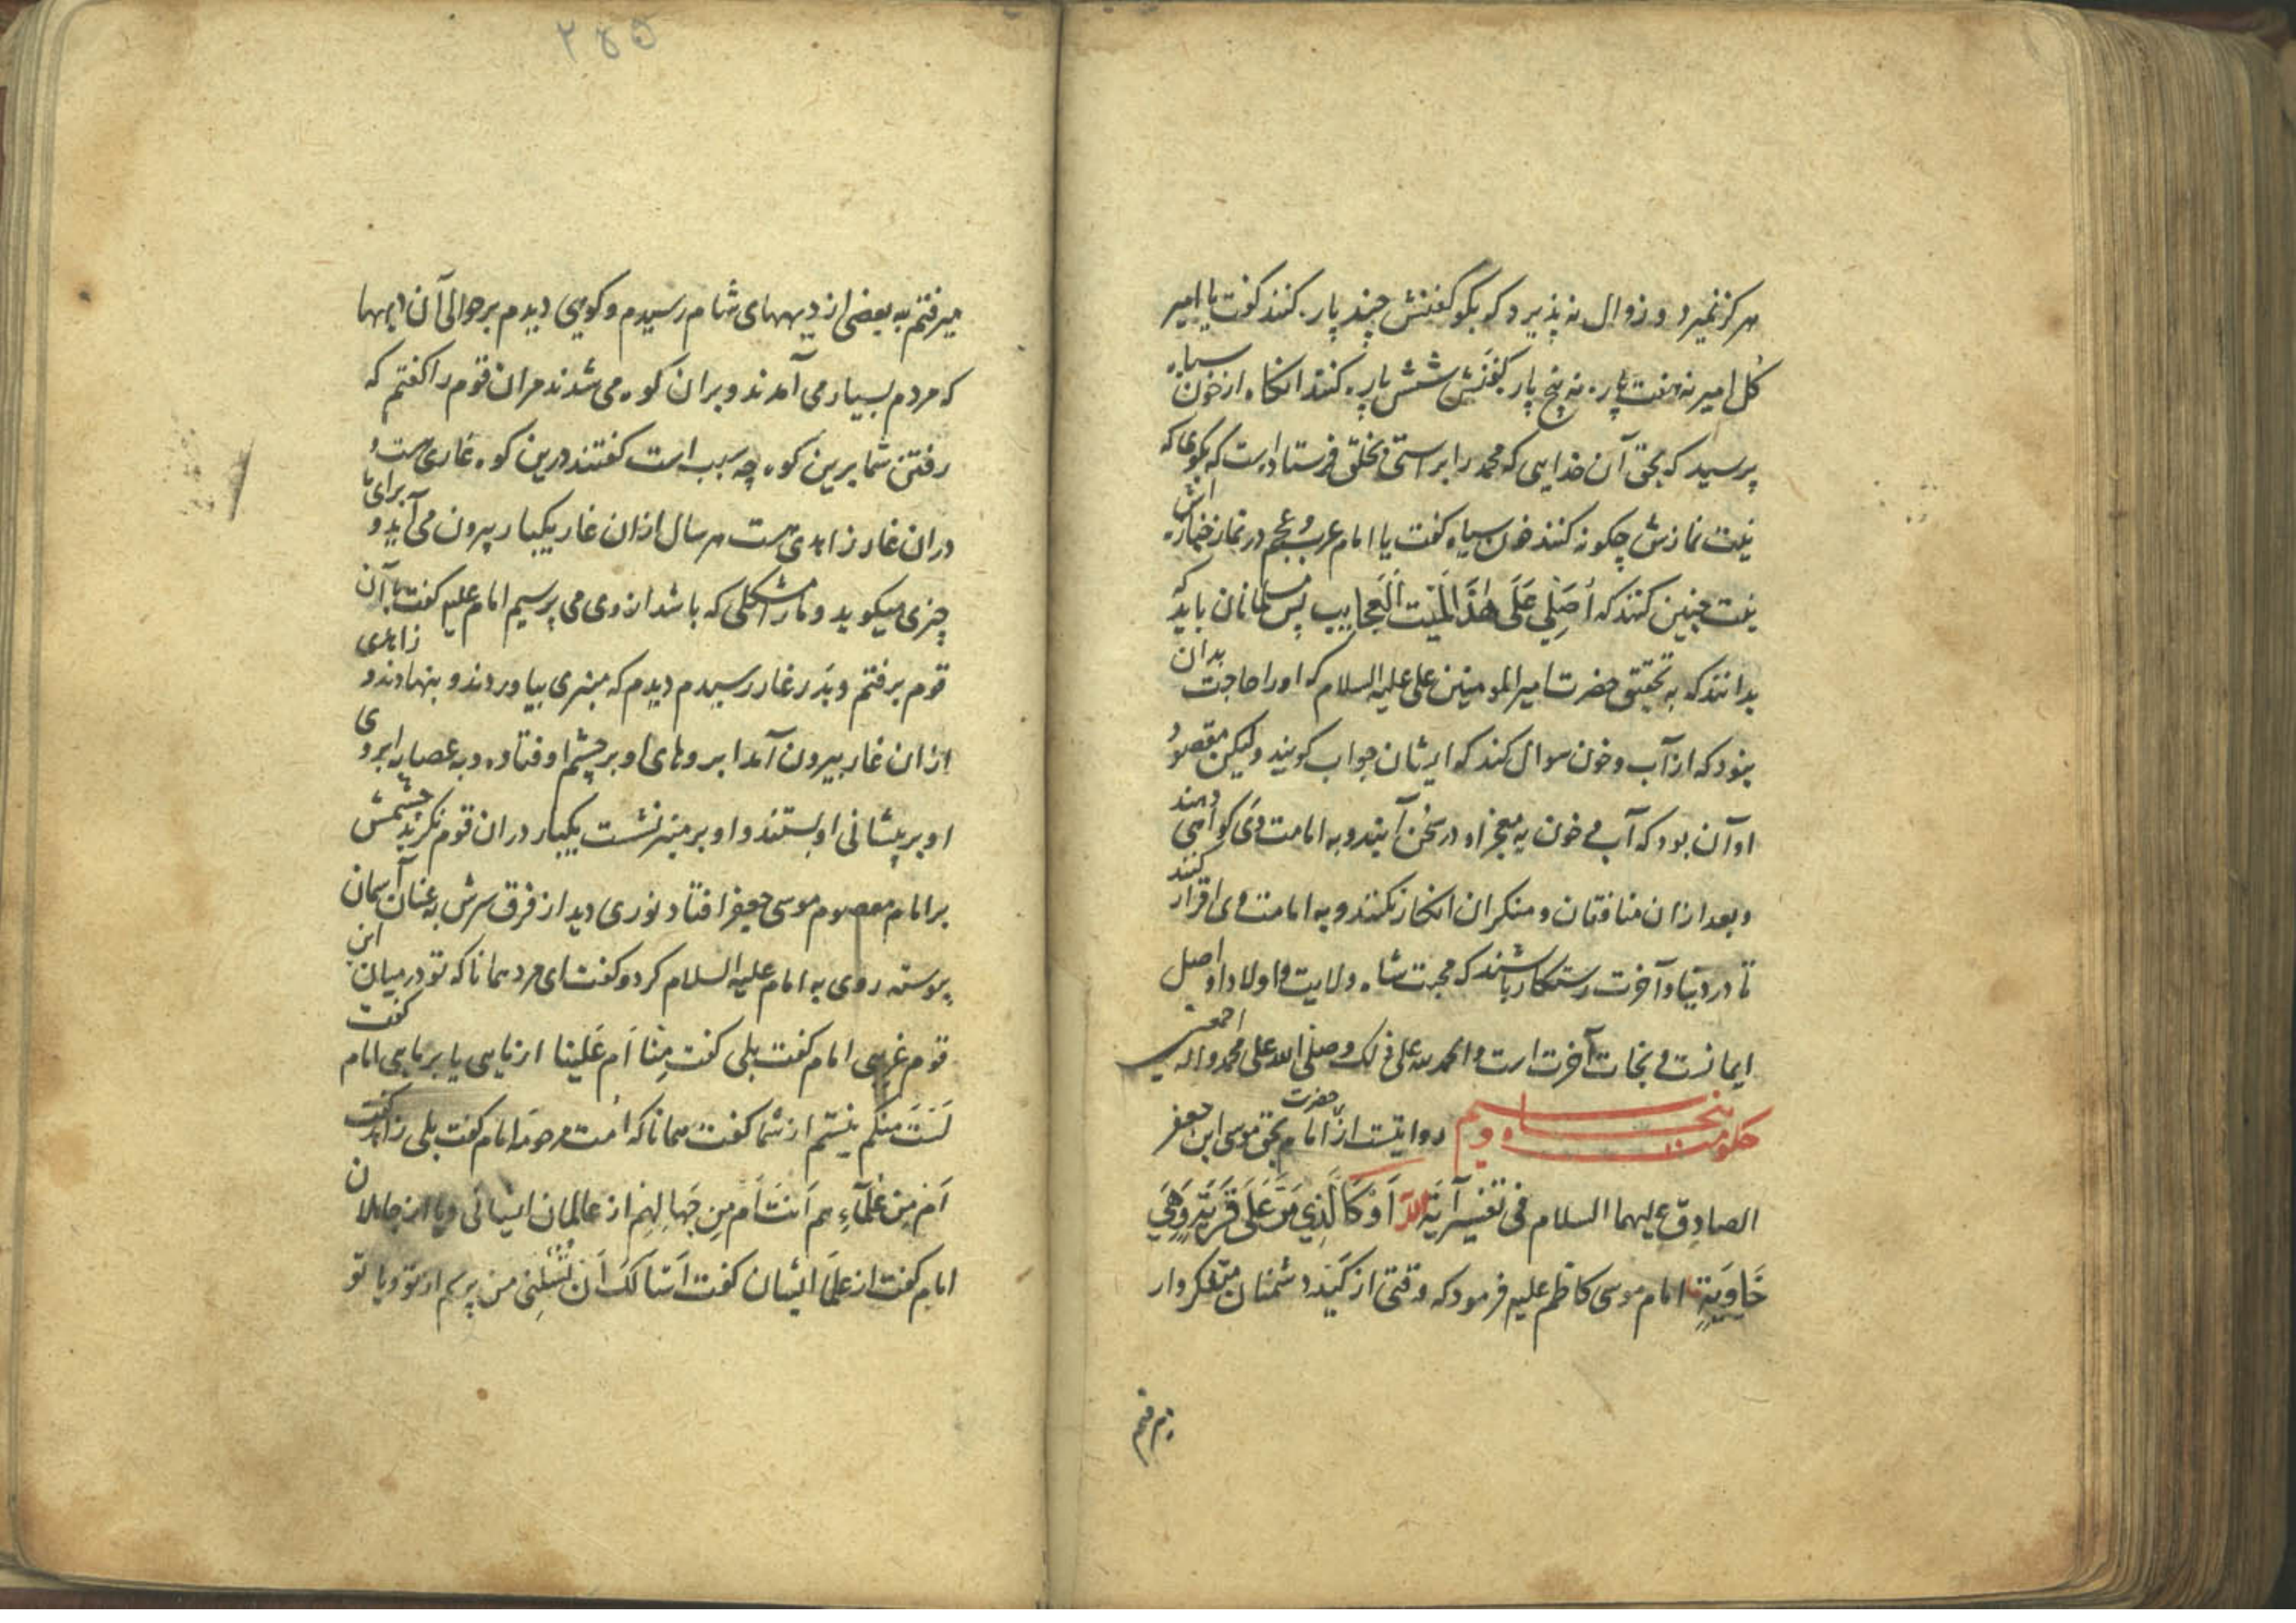 هرگز نمیرد و زوال نه پذیرد که بگو کفنش چند پاره کنند گفت یا امیر
کل امیر نه هفت پاره نه پنج پاره کفنش شش پاره کنند انگاه از خون سیاه
پرسید که بحق آن خدایی که محمد را براستی بخلق فرستاده است که بگوی که
نیت نمازش چگونه کنند خون سیاه گفت یا امام عرب و عجم در نماز جنازه اش
نیت چنین کنند که اُصَلِّی عَلَی هٰذَا المَیِّت العَجایب پس مسلمانان باید که
بدانند که به تحقیق حضرت امیر المومنین علی علیه السلام که او را حاجت بدان
بنود که از آب و خون سوال کند که ایشان جواب گویند ولیکن مقصود
او آن بود که آب و خون به معجز او در سخن آیند و به امامت وی گواهی دهند
و بعد ازان منافقان و منکران انکار نکنند و به امامت وی اقرار کنند
تا در دنیا و آخرت رستکار باشند که محبت شاه ولایت و اولاد او اصل
ایمانست و نجات آخرت است والحمد لله علی ذلک و صلی الله علی محمد واله اجمعین
حکومت پنجاه و سیم روایتست از حضرت امام بحق موسی ابن جعفر
الصادق علیهما السلام فی تفسیر آیة اَوْ کَالَّذِی مَرَّ عَلَی قَرْیَةٍ وَهِیَ
خَاوِیَةٍ امام موسی کاظم علیه فرمود که وقتی از کید دشمنان متفکروار
میرفتم
۲۸۵
میرفتم به بعضی از دیههای شام رسیدم و کوهی دیدم بر حوالی آن دیهها
که مردم بسیار می آمدند و بران کوه می شدند مران قوم را گفتم که
رفتن شما برین کوه چه سبب است گفتند درین کوه غاری هست و
دران غار زاهدی هست هر سال ازان غار یکبار بیرون می آید و برای ما
چیزی میگوید و ما را مشکلی که باشد از وی می پرسیم امام علیه گفت با آن
قوم برفتم و بدر غار رسیدم دیدم که منبری بیاوردند و بنهادند و زاهدی
ازان غار بیرون آمد ابروهای او بر چشم او فتاده و به عصابه ابروی
او بر پیشانی او بستند و او بر منبر نشست یکبار دران قوم نگریست چشمش
بر امام معصوم موسی جعفر افتاد نوری دید از فرق سرش به عنان آسمان
پیوسته روی به امام علیه السلام کرد و گفت ای مرد همانا که تو در میان این
قوم غریبی امام گفت بلی گفت مِنّا اَم عَلَینا از مایی یا بر مایی امام گفت
لَستَ مِنکُم نیستم از شما گفت همانا که امت مرحومه امام گفت بلی زاهد گفت
اَم مِن عُلَمآءِ هِم اَنتَ اَم مِن جَهالِهِم از عالمان ایشانی و یا از جاهلان
امام گفت از علما ایشان گفت اَسألکَ اَن تَسئلنی من پرسم از تو و یا تو